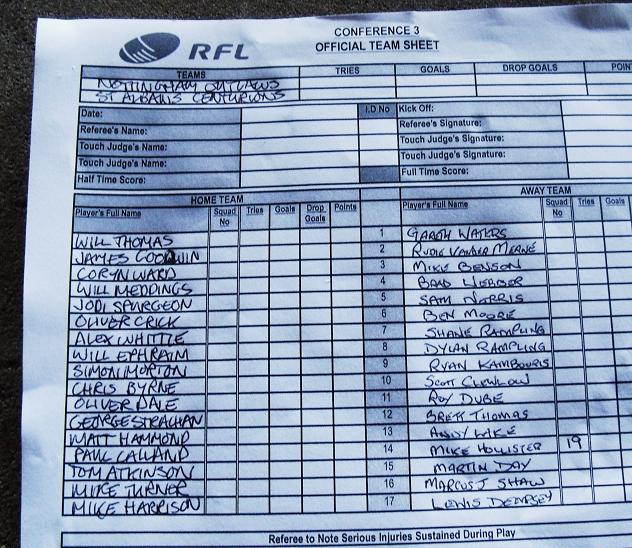 RFL
CONFERENCE 3
OFFICIAL TEAM SHEET
TEAMS TRIES GOALS DROP GOALS POIN
NOTTINGHAM OUTLAWS
ST ALBANS CENTURIONS
Date: I.D No Kick Off:
Referee's Name: Referee's Signature:
Touch Judge's Name: Touch Judge's Signature:
Touch Judge's Name: Touch Judge's Signature:
Half Time Score: Full Time Score:
HOME TEAM AWAY TEAM
Player's Full Name Squad No Tries Goals Drop Goals Points Player's Full Name Squad No Tries Goals
WILL THOMAS 1 GARETH WATERS
JAMES GOODWIN 2 RUDIE VANDER MERWE
CORYN WARD 3 MIKE BENSON
WILL MEDDINGS 4 BRAD
JODI SPURGEON 5 SAM NORRIS
OLIVER CRICK 6 BEN MOORE
ALEX WHITTLE 7 SHANE RAMPLING
WILL EPHRAIM 8 DYLAN RAMPLING
SIMON MORTON 9 RYAN KAMBOURIS
CHRIS BYRNE 10 SCOTT CLEWLOW
OLIVER DALE 11 ROY DUBE
GEORGE STRACHAN 12 BRETT THOMAS
MATT HAMMOND 13 ANDY LAKE
PAUL CALLAND 14 MIKE HOLLISTER 19
TOM ATKINSON 15 MARTIN DAY
MIKE TURNER 16 MARCUS J SHAW
MIKE HARRISON 17 LEWIS DEMPSEY
Referee to Note Serious Injuries Sustained During Play